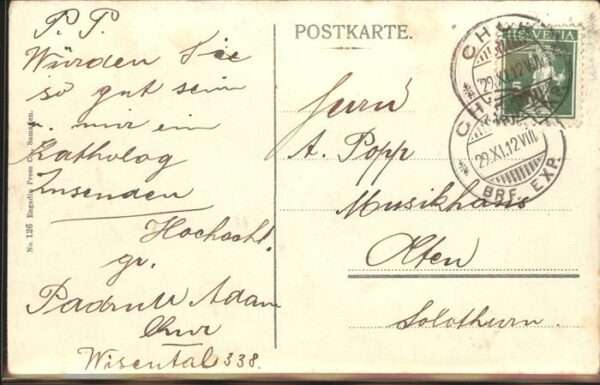 P. P.
Würden Sie
so gut sein
u. mir ein
Katholog
Zusenden
Hochacht.
gr.
Padrutt Adam
Chur
Wisental 338.
No. 126 Engadin Press Co., Samaden.
POSTKARTE.
HELVETIA
5
CHUR
29.XI.12.VIII.
CHUR
29.XI.12.VIII.
BRF. EXP.
Herrn
A. Popp
Musikhaus
Olten
Solothurn.